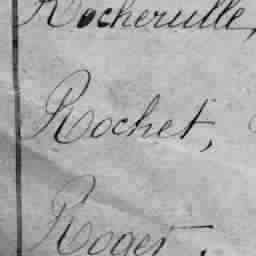 Rocherulle,
Rochet,
Roget.